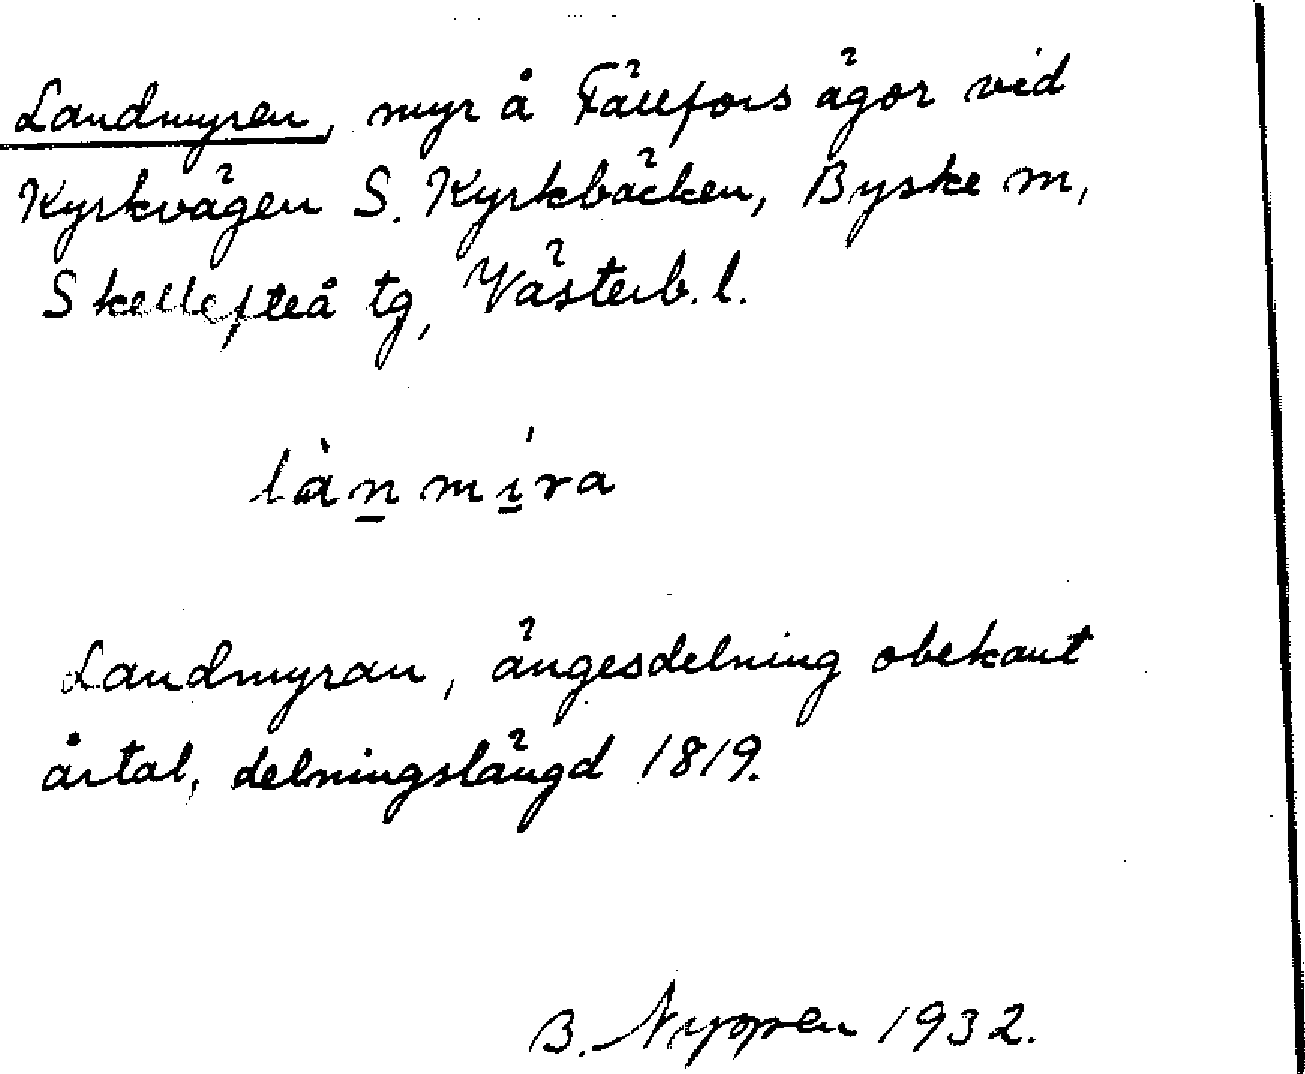 Landmyren, myr å Fällfors ägor vid
Kyrkvägen S. Kyrkbäcken, Byske m,
Skellefteå tg, Västerb. l.
làn̲mí̲ra
Landmyran, ängesdelning obekant
årtal, delningslängd 1819.
B. Nyppen 1932.